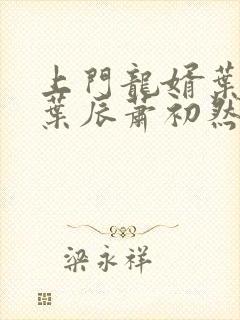 上門龍婿葉
葉辰蕭初然
梁永祥